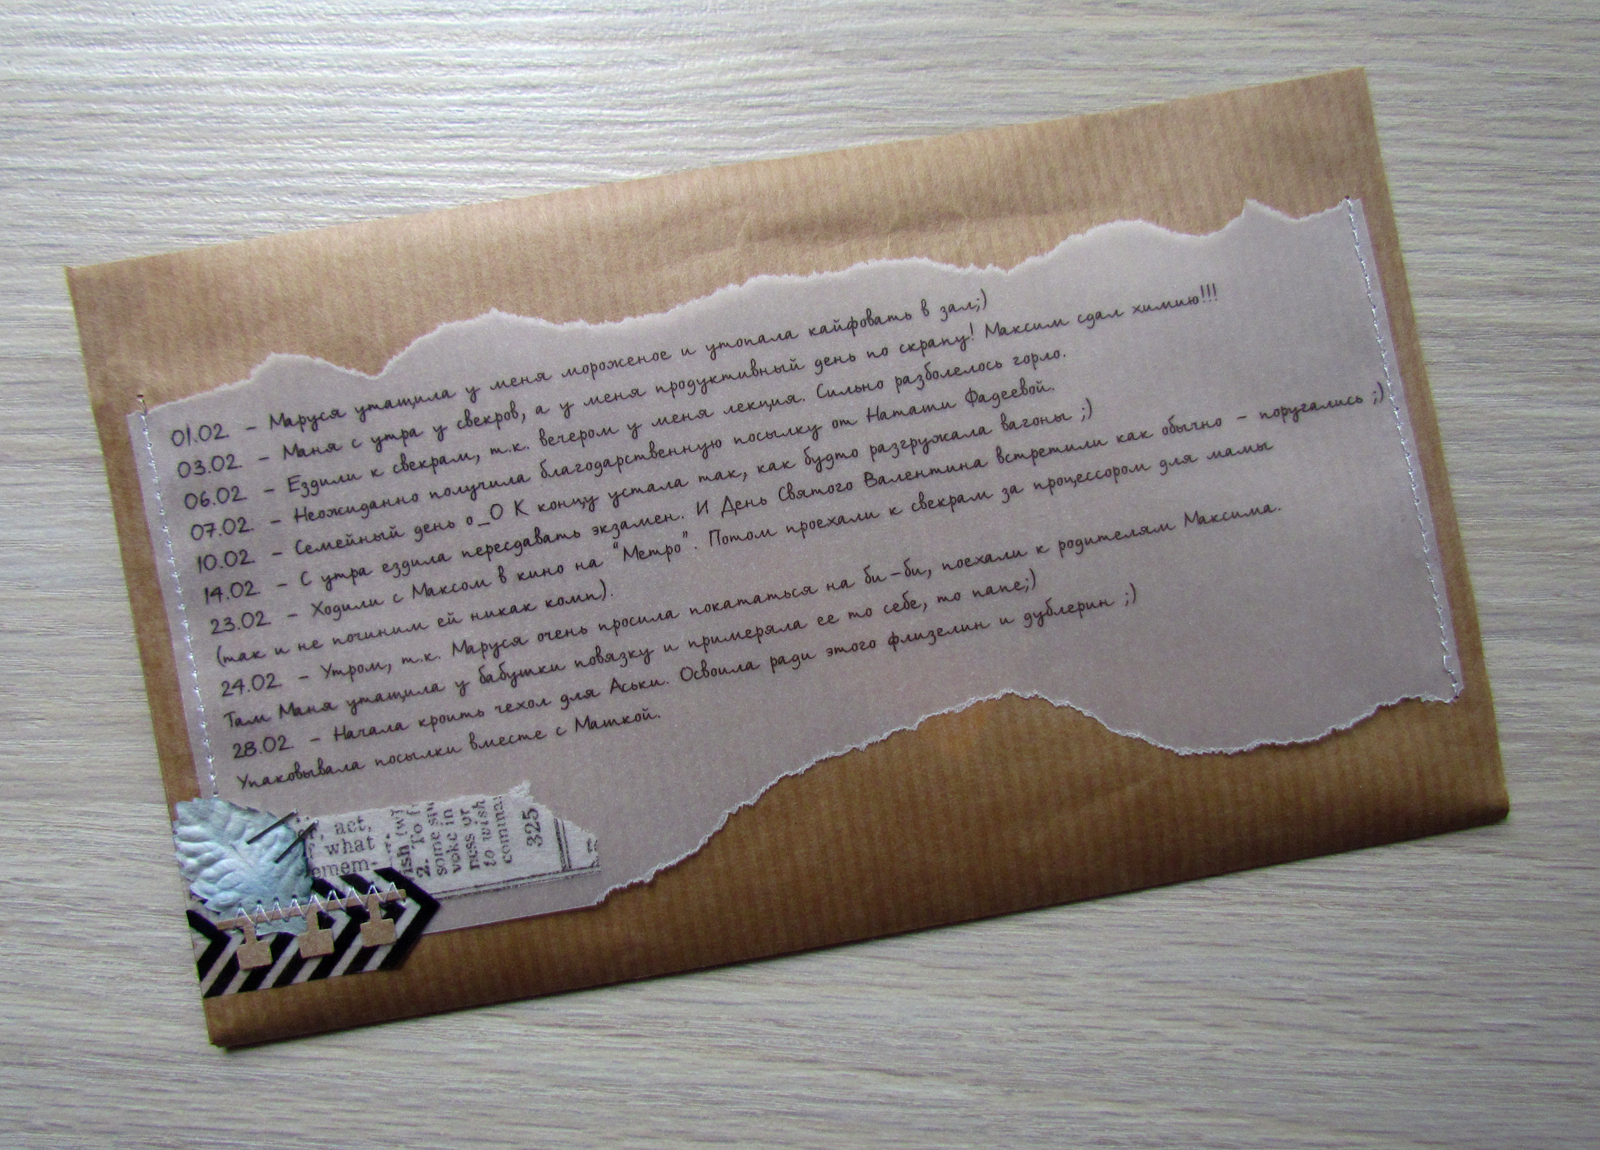 01.02 - Маруся утащила у меня мороженое и утопала кайфовать в зал;)
03.02 - Маня с утра у свекров, а у меня продуктивный день по скрапу! Максим сдал химию!!!
06.02 - Ездили к свекрам, т.к. вечером у меня лекция. Сильно разболелось горло.
07.02 - Неожиданно получила благодарственную посылку от Наташи Фадеевой.
10.02 - Семейный день о_О К концу устала так, как будто разгружала вагоны ;)
14.02 - С утра ездила пересдавать экзамен. И День Святого Валентина встретили как обычно - поругались ;)
23.02 - Ходили с Максом в кино на "Метро". Потом проехали к свекрам за процессором для мамы
(так и не починим ей никак комп).
24.02 - Утром, т.к. Маруся очень просила покататься на би-би, поехали к родителям Максима.
Там Маня утащила у бабушки повязку и примеряла ее то себе, то папе;)
28.02 - Начала кроить чехол для Аськи. Освоила ради этого флизелин и дублерин ;)
Упаковывала посылки вместе с Машкой.
act,
what
emem-
2. To
some
voke in
ness or
to wish
325